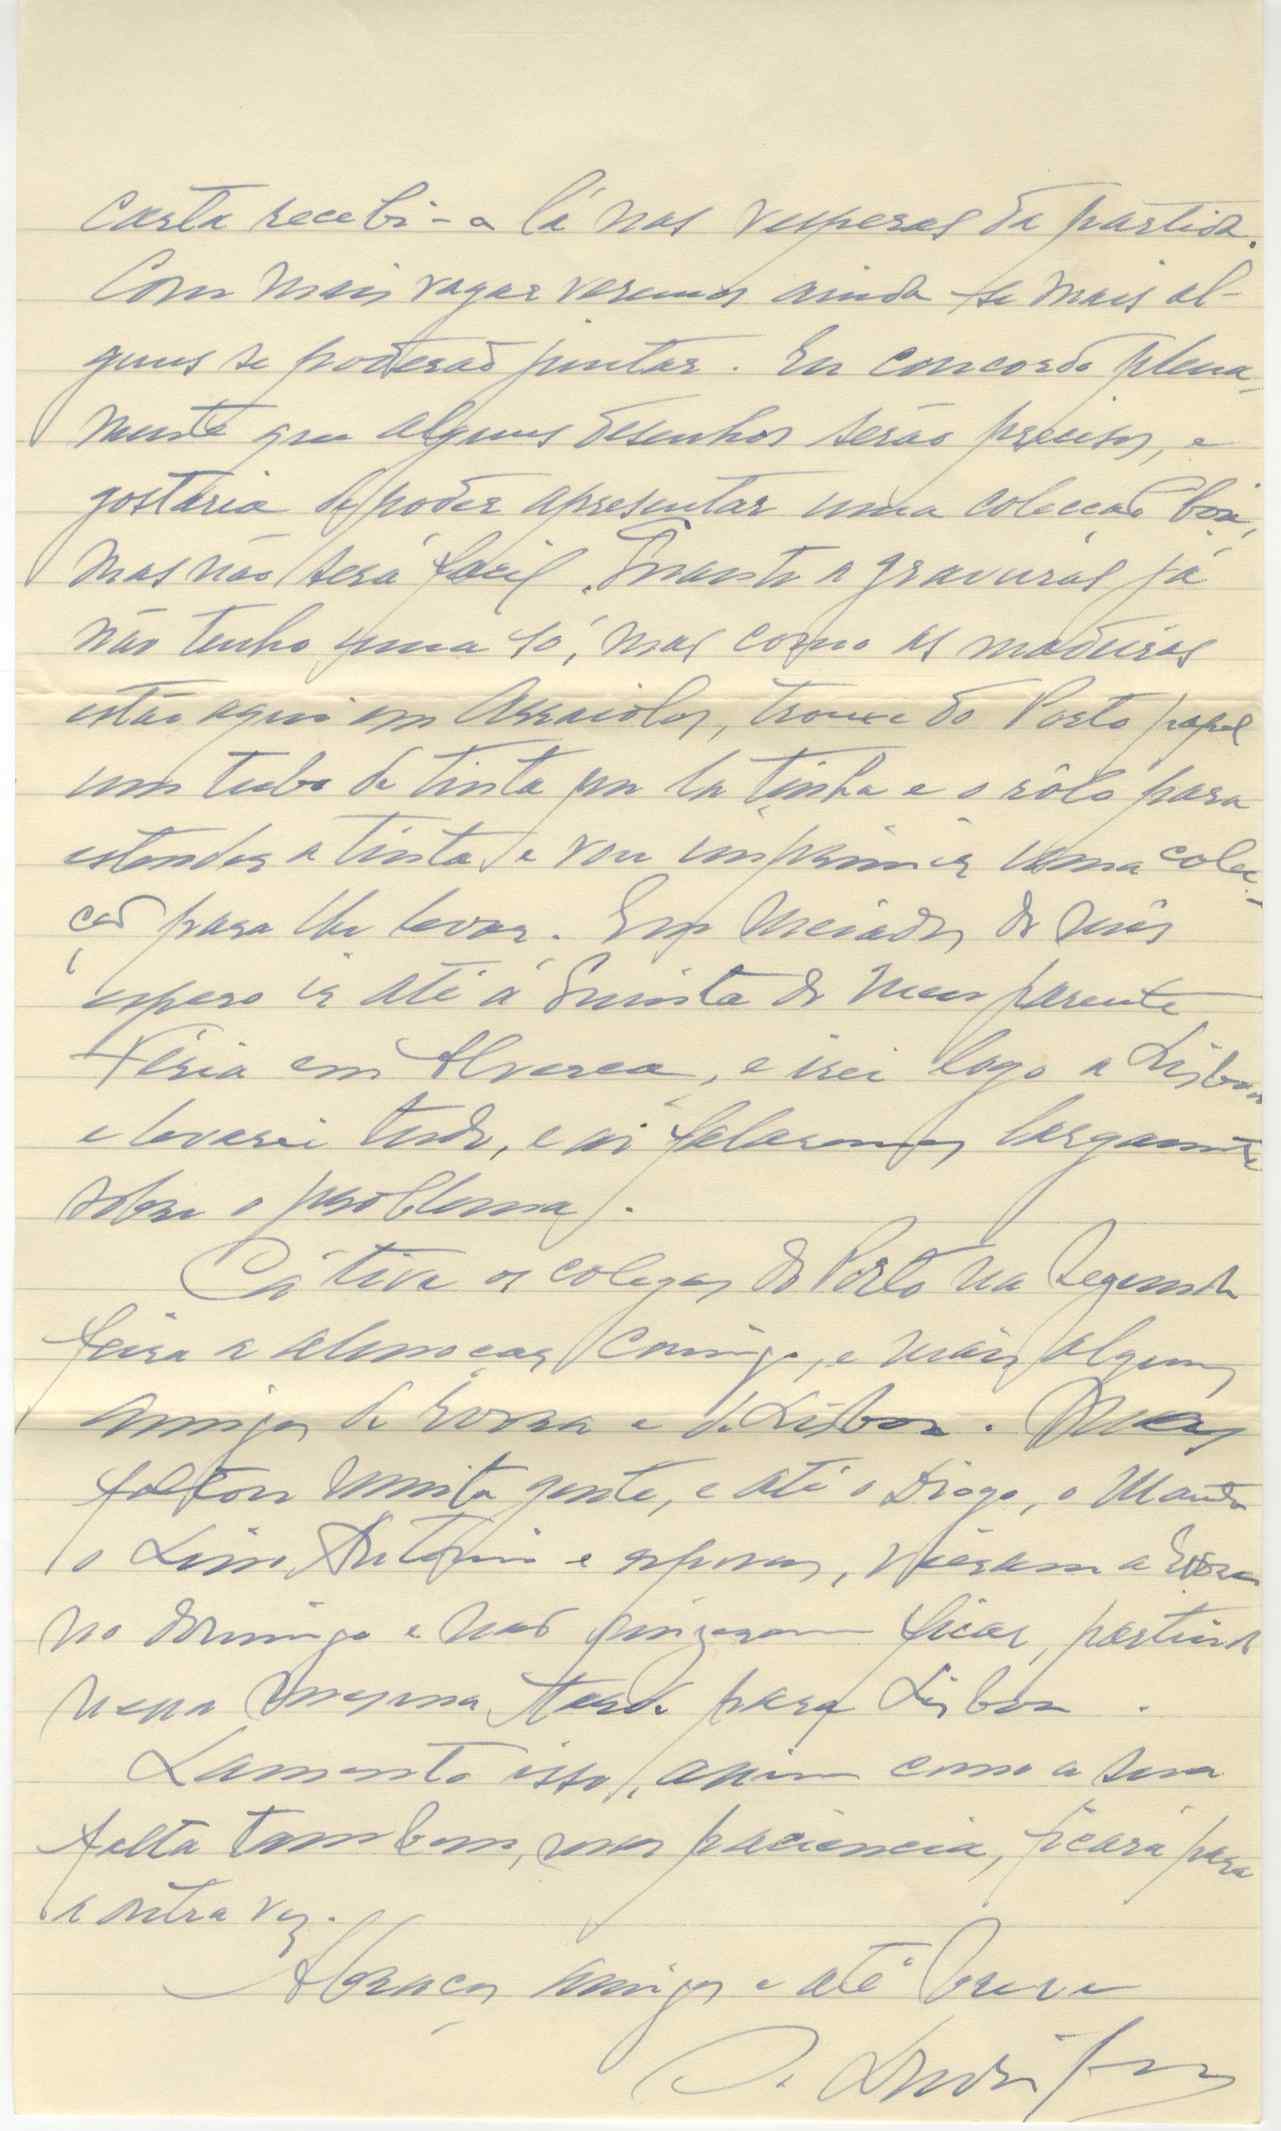 carta recebi-a lá nas vesperas da partida.
Com mais vagar veremos ainda se mais al-
guns se poderão juntar. Eu concordo plena-
mente que alguns desenhos serão precisos, e
gostaria de poder apresentar uma colecção boa,
mas não será facil. Quanto a gravuras já
não tenho uma só, mas como as madeiras
estão aqui em Arraiolos, trouxe do Porto papel
um tubo de tinta que lá tinha e o rôlo para
estender a tinta e vou imprimir uma colec-
ção para lhe levar. Em meiados do mês
espero ir até á Quinta do meu parente
Féria em Alverca, e irei logo a Lisboa
e levarei tudo, e aí falaremos largamente
sobre o problema.
Cá tive os colegas do Porto na Segunda
feira a almoçar comigo, e mais alguns
amigos de Évora e de Lisboa. Mas
faltou muita gente, e até o Diogo, o
o Lino António e esposas, vieram a Évora
no domingo e não quizeram ficar, partindo
nessa mesma tarde para Lisboa.
Lamento isso, assim como a sua
falta tambem, mas paciencia, ficará para
a outra vez.
Abraços amigos e até breve